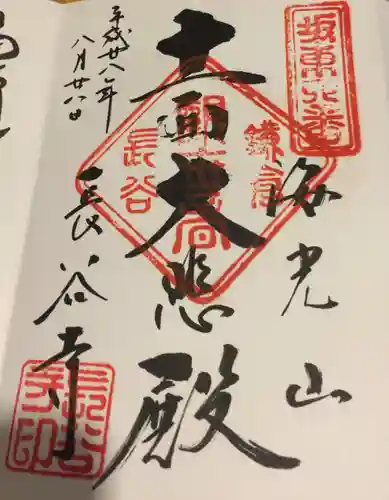 坂東四番
海光山
十一面大悲殿
鎌倉
長谷
平成廿八年
八月廿六日
長谷寺
長谷寺印